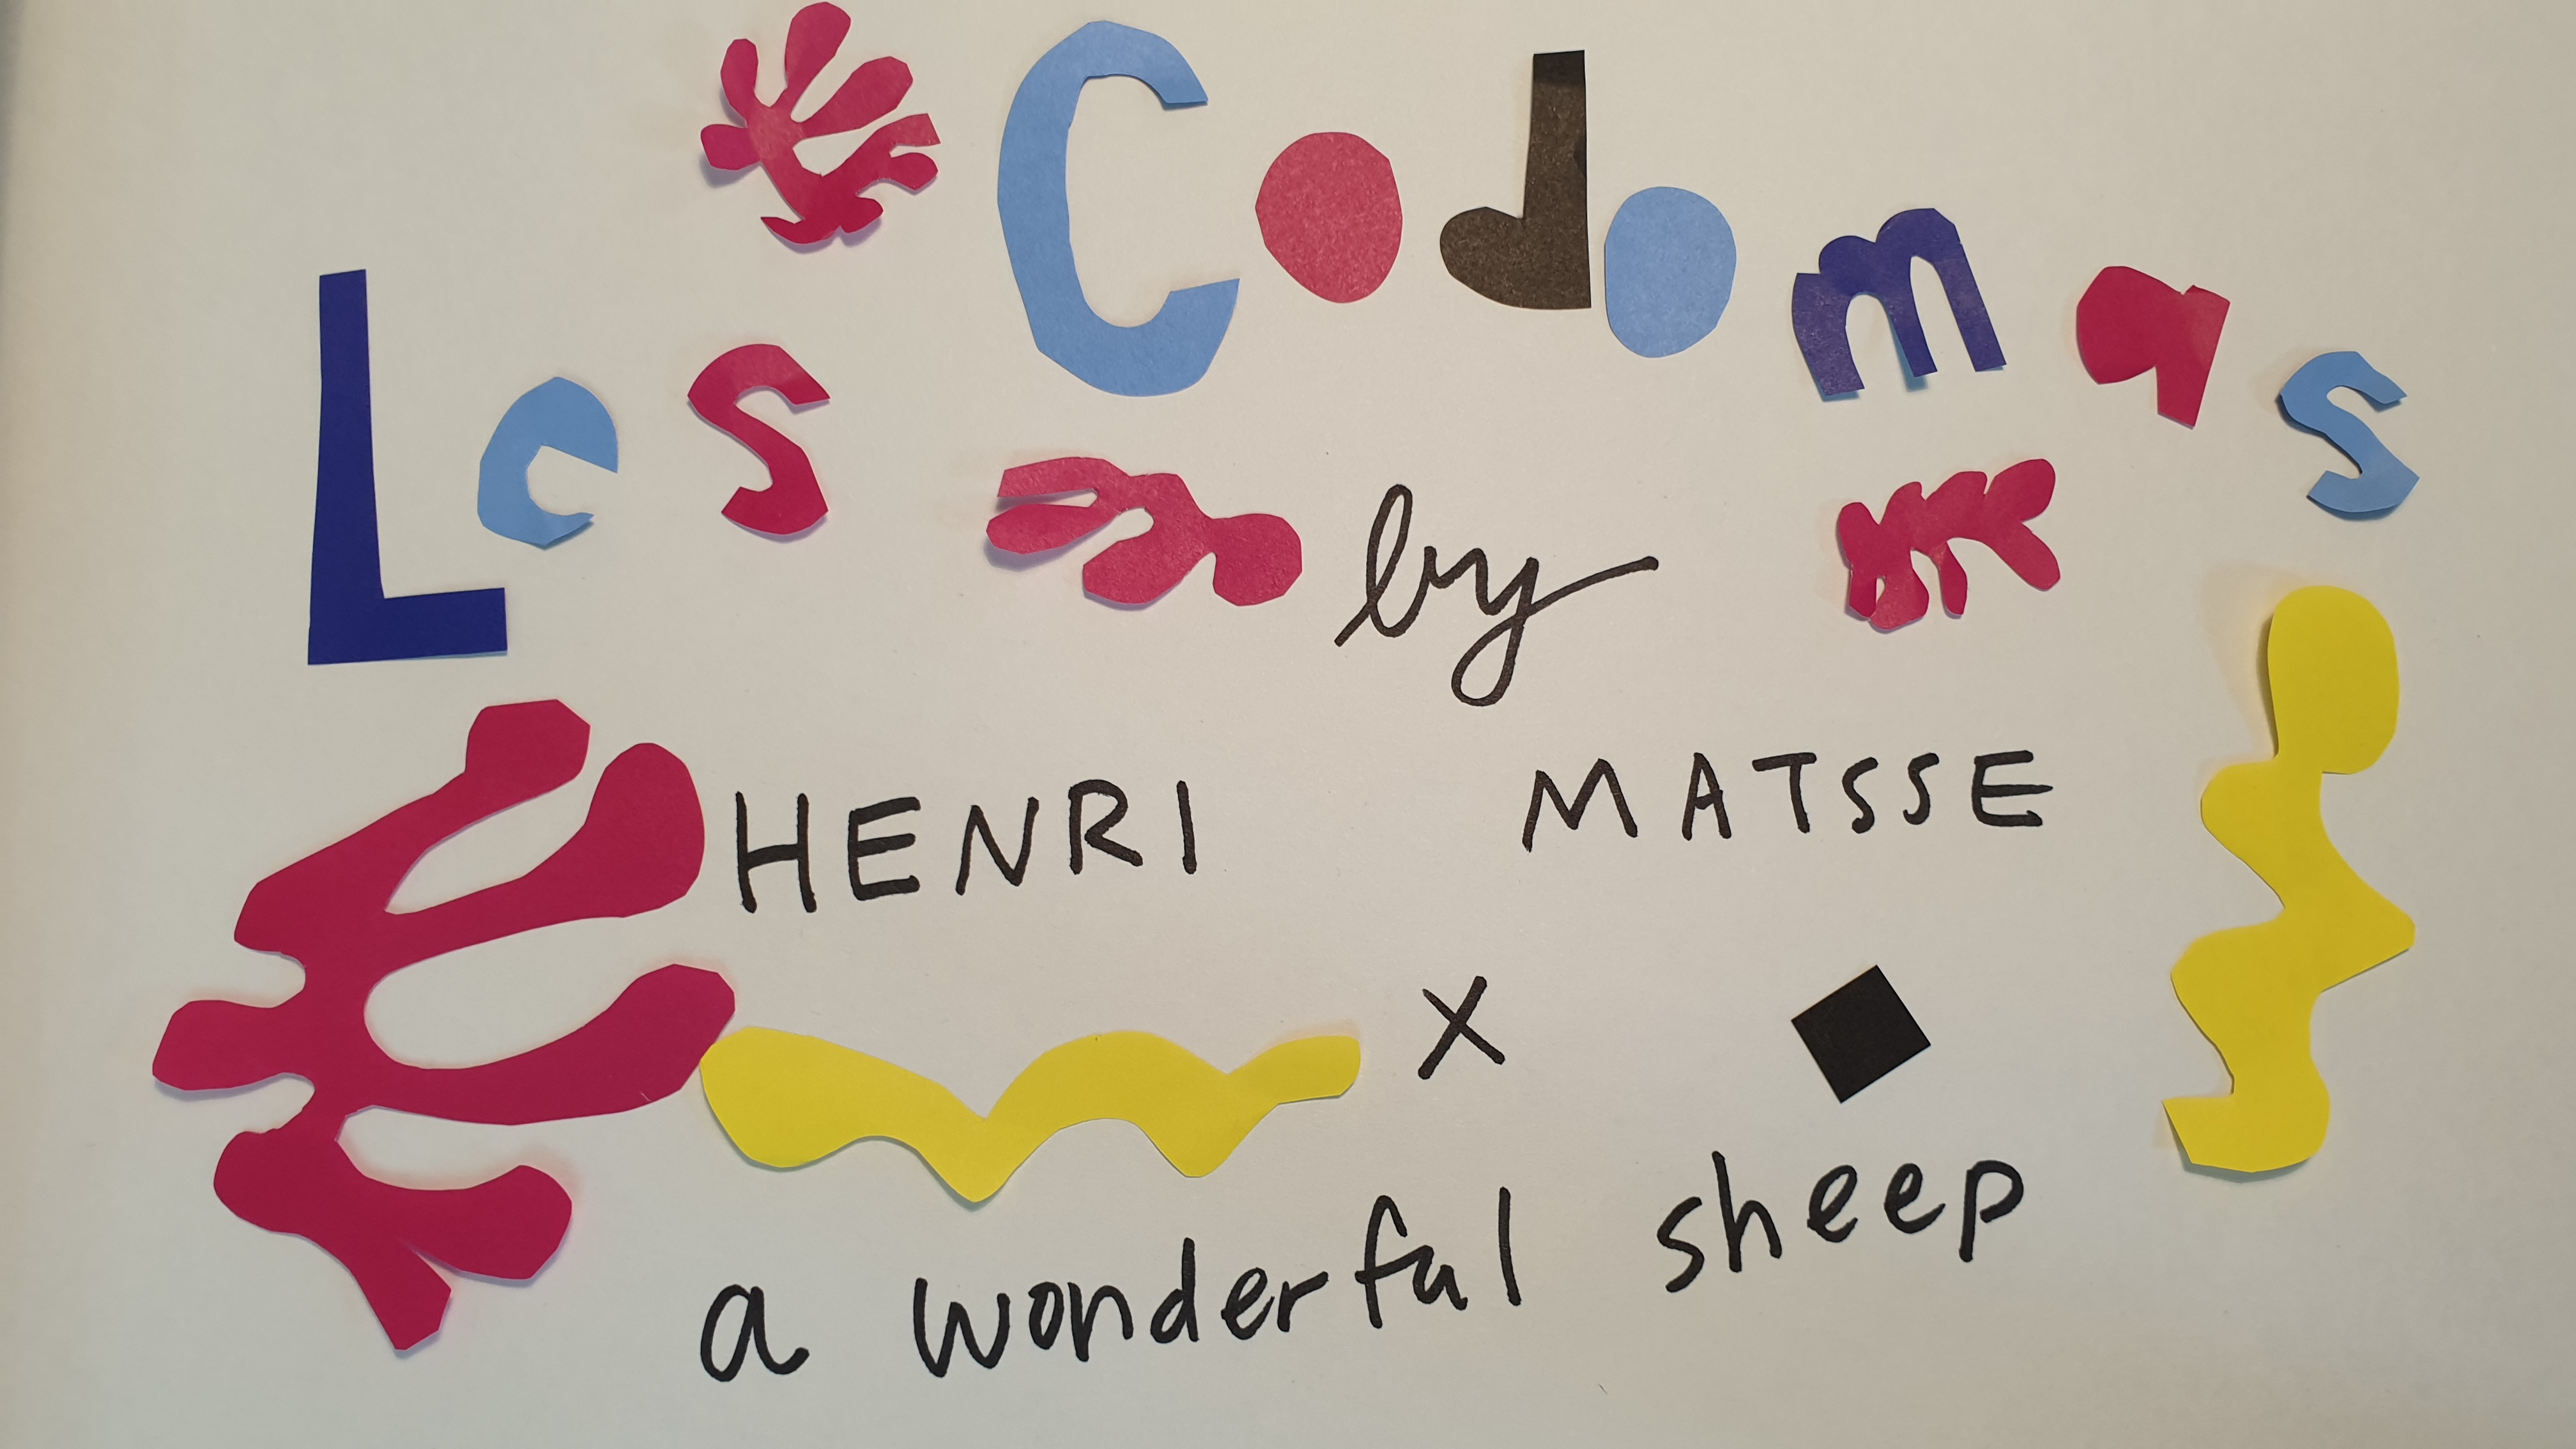 Les Codomas
by
HENRI MATSSE
X
a wonderful sheep